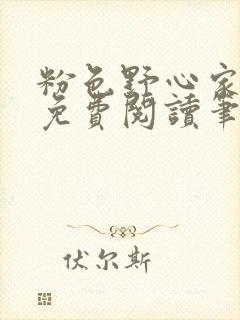 粉色野心家
免費閱讀筆
伏尔斯